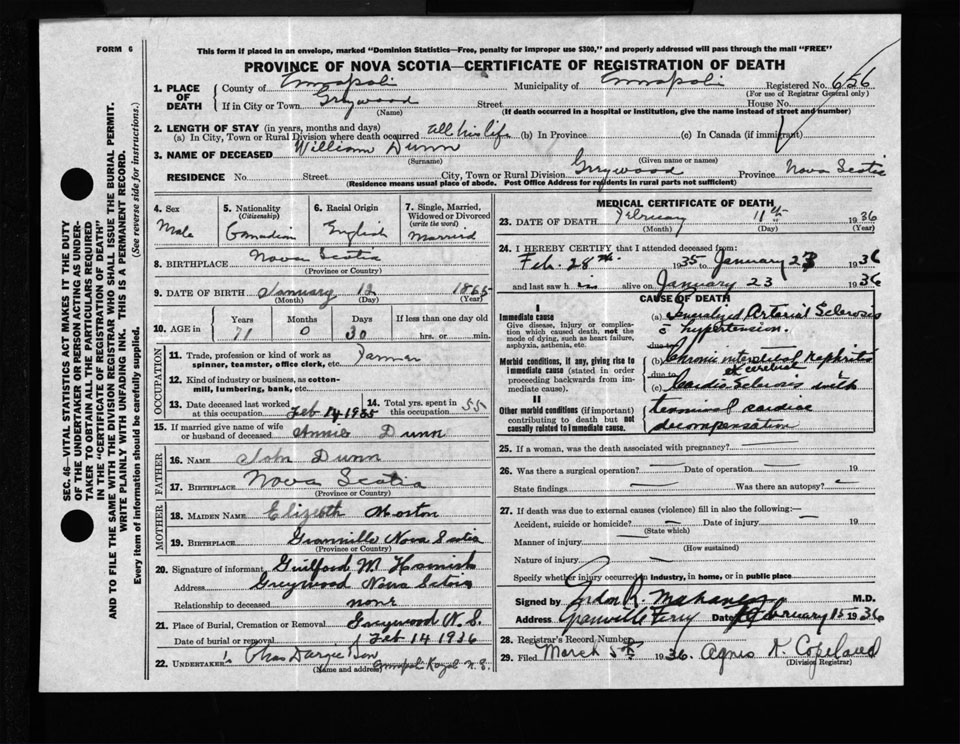 FORM 6
This form if placed in an envelope, marked "Dominion Statistics—Free, penalty for improper use $300," and properly addressed will pass through the mail "FREE"
PROVINCE OF NOVA SCOTIA—CERTIFICATE OF REGISTRATION OF DEATH
1. PLACE OF DEATH
County of Annapolis Municipality of Annapolis Registered No. 656
(For use of Registrar General only)
If in City or Town Greywood Street House No.
(Name) (If death occurred in a hospital or institution, give the name instead of street and number)
2. LENGTH OF STAY (in years, months and days)
(a) In City, Town or Rural Division where death occurred all his life (b) In Province (c) In Canada (if immigrant)
3. NAME OF DECEASED William Dunn
(Surname) (Given name or names)
RESIDENCE No. Street City, Town or Rural Division Greywood Province Nova Scotia
(Residence means usual place of abode. Post Office Address for residents in rural parts not sufficient)
4. Sex
Male
5. Nationality
(Citizenship)
Canadian
6. Racial Origin
English
7. Single, Married, Widowed or Divorced
(write the word)
Married
8. BIRTHPLACE Nova Scotia
(Province or Country)
9. DATE OF BIRTH January 12 1865
(Month) (Day) (Year)
10. AGE in
Years Months Days If less than one day old
71 0 30 hrs. or min.
OCCUPATION
11. Trade, profession or kind of work as spinner, teamster, office clerk, etc. Farmer
12. Kind of industry or business, as cotton-mill, lumbering, bank, etc.
13. Date deceased last worked at this occupation Feb 14, 1935
14. Total yrs. spent in this occupation 55
15. If married give name of wife or husband of deceased Annie Dunn
FATHER
16. NAME John Dunn
17. BIRTHPLACE Nova Scotia
(Province or Country)
MOTHER
18. MAIDEN NAME Elizabeth Morton
19. BIRTHPLACE Granville Nova Scotia
(Province or Country)
20. Signature of informant Guilford M Hamish
Address Greywood Nova Scotia
Relationship to deceased none
21. Place of Burial, Cremation or Removal Greywood N.S.
Date of burial or removal Feb 14 1936
22. UNDERTAKER Chas Dargie & Son
(Name and address) Annapolis Royal N.S.
MEDICAL CERTIFICATE OF DEATH
23. DATE OF DEATH February 11th 1936
(Month) (Day) (Year)
24. I HEREBY CERTIFY that I attended deceased from:
Feb. 28th 1935 to January 23 1936
and last saw him alive on January 23 1936
CAUSE OF DEATH
I
Immediate cause
Give disease, injury or complication which caused death, not the mode of dying, such as heart failure, asphyxia, asthenia, etc.
(a) Generalized Arterial Sclerosis
c̄ hypertension.
due to
Morbid conditions, if any, giving rise to immediate cause (stated in order proceeding backwards from immediate cause).
(b) Chronic interstitial nephritis
due to
(c) Cardio Sclerosis with
II
Other morbid conditions (if important) contributing to death but not causally related to immediate cause.
terminal cardiac
decompensation
25. If a woman, was the death associated with pregnancy? —
26. Was there a surgical operation? — Date of operation — 19
State findings — Was there an autopsy? —
27. If death was due to external causes (violence) fill in also the following:—
Accident, suicide or homicide? — Date of injury — 19
(State which)
Manner of injury —
(How sustained)
Nature of injury —
Specify whether injury occurred in industry, in home, or in public place
Signed by M.D.
Address Granville Ferry Date February 15 1936
28. Registrar's Record Number
29. Filed March 5th 1936. Agnes K. Copeland
(Division Registrar)
SEC. 46—VITAL STATISTICS ACT MAKES IT THE DUTY OF THE UNDERTAKER OR PERSON ACTING AS UNDERTAKER TO OBTAIN ALL THE PARTICULARS REQUIRED IN THE "CERTIFICATE OF REGISTRATION OF DEATH"
AND TO FILE THE SAME WITH THE DIVISION REGISTRAR WHO SHALL ISSUE THE BURIAL PERMIT.
WRITE PLAINLY WITH UNFADING INK. THIS IS A PERMANENT RECORD.
Every item of information should be carefully supplied. (See reverse side for instructions.)